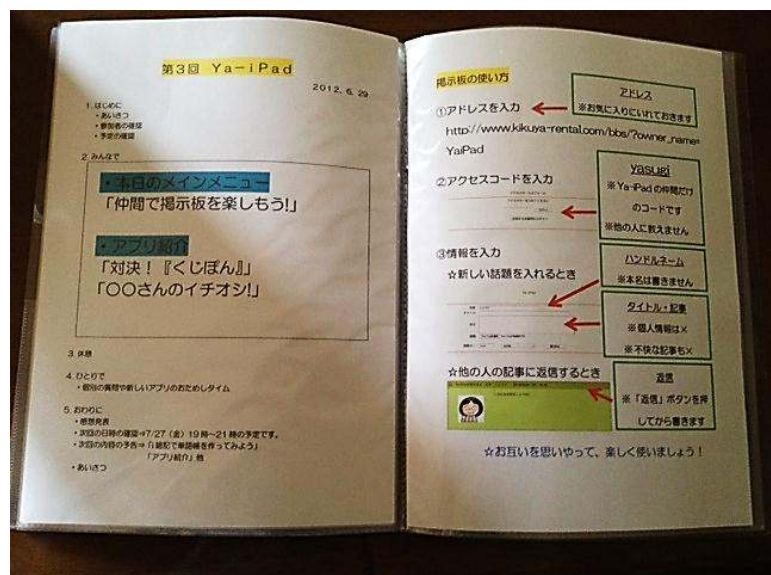 第3回 Ya-iPad
2012.6.29
1.はじめに
・あいさつ
・参加者の確認
・予定の確認
2.みんなで
・本日のメインメニュー
「仲間で掲示板を楽しもう!」
・アプリ紹介
「対決!『くじぽん』」
「〇〇さんのイチオシ!」
3.休憩
4.ひとりで
・個別の質問や新しいアプリのおためしタイム
5.おわりに
・感想発表
・次回の日時の確認→7/27(金)19時~21時の予定です。
・次回の内容の予告→「i暗記で単語帳を作ってみよう」
「アプリ紹介」他
・あいさつ
掲示板の使い方
アドレス
※お気に入りにいれておきます
①アドレスを入力
http://www.kikuya-rental.com/bbs/?owner_name=
YaiPad
②アクセスコードを入力
yasugi
※Ya-iPadの仲間だけ
のコードです
※他の人に教えません
③情報を入力
☆新しい話題を入れるとき
ハンドルネーム
※本名は書きません
タイトル・記事
※個人情報は×
※不快な記事も×
☆他の人の記事に返信するとき
返信
※「返信」ボタンを押
してから書きます
☆お互いを思いやって、楽しく使いましょう!